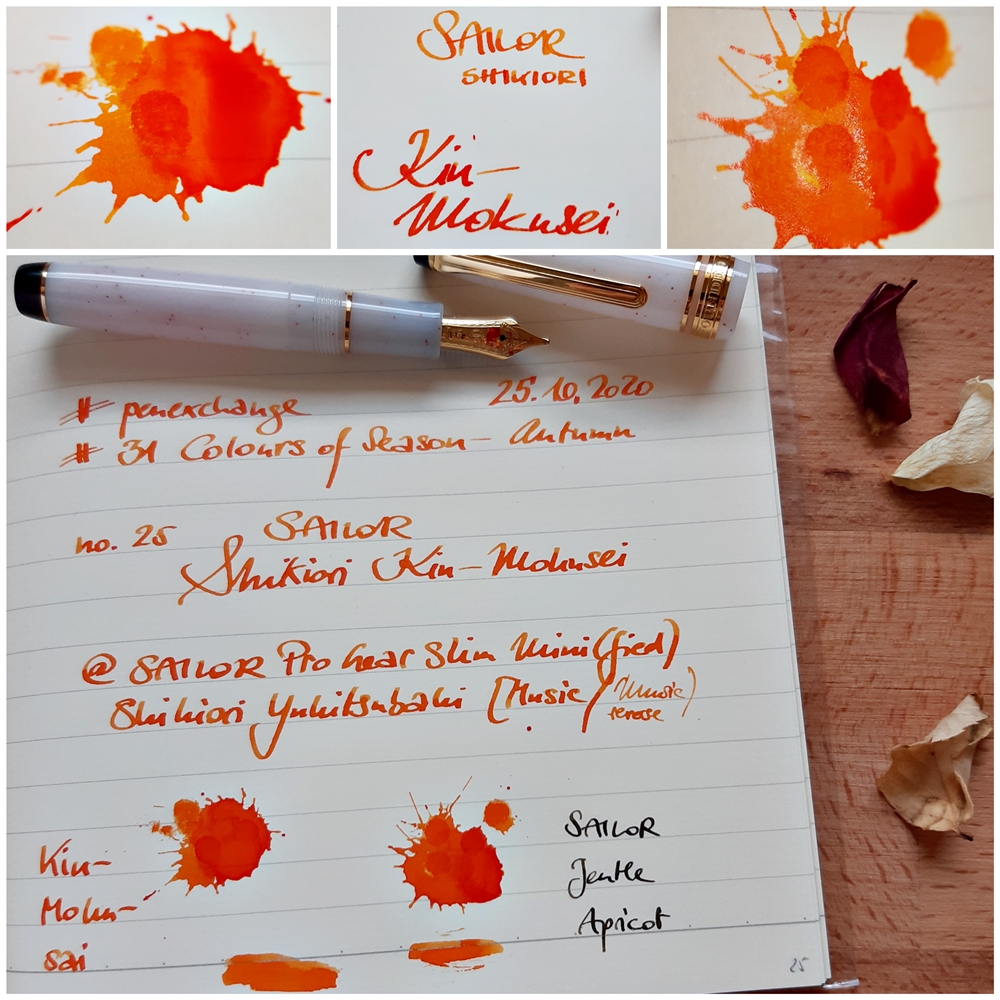 SAILOR
SHIKIORI
Kin-
Mokusei
# penexchange 25.10.2020
# 31 Colours of Season - Autumn
no. 25 SAILOR
Shikiori Kin-Mokusei
@ SAILOR Pro Gear Slim Mini(fied)
Shikiori Yukitsubaki [Music/(Music)
reverse
Kin-
Moku-
sai
SAILOR
Jentle
Apricot
25